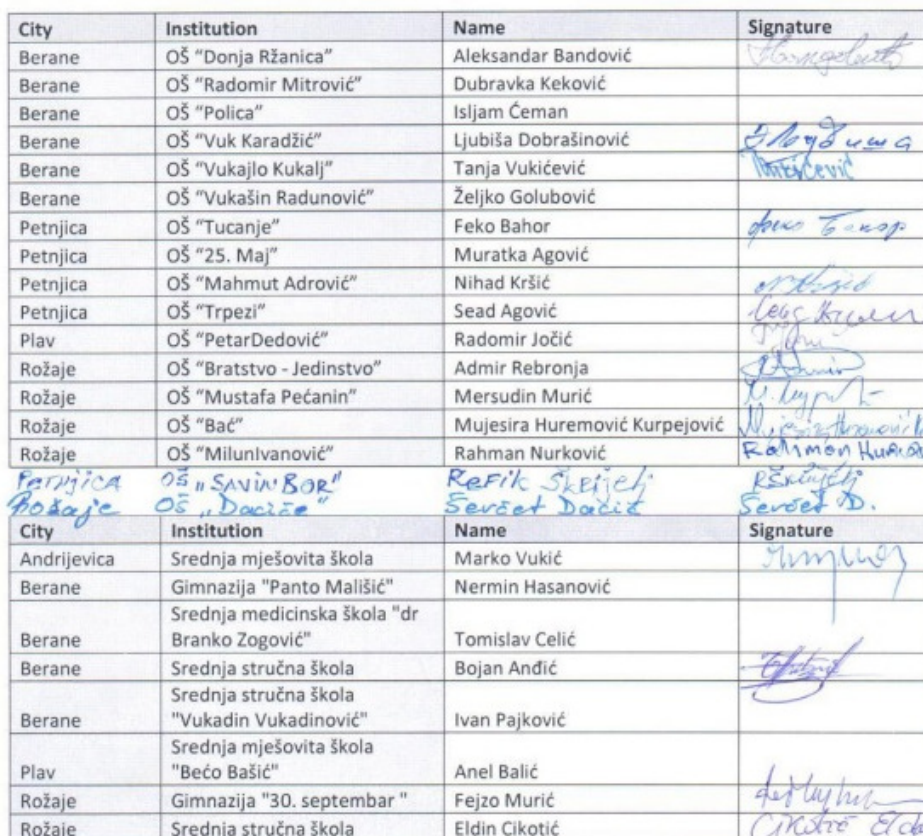 City Institution Name Signature
Berane OŠ “Donja Ržanica” Aleksandar Bandović
Berane OŠ “Radomir Mitrović” Dubravka Keković
Berane OŠ “Polica” Isljam Ćeman
Berane OŠ “Vuk Karadžić” Ljubiša Dobrašinović
Berane OŠ “Vukajlo Kukalj” Tanja Vukićević Vukićević
Berane OŠ “Vukašin Radunović” Željko Golubović
Petnjica OŠ “Tucanje” Feko Bahor
Petnjica OŠ “25. Maj” Muratka Agović
Petnjica OŠ “Mahmut Adrović” Nihad Kršić
Petnjica OŠ “Trpezi” Sead Agović
Plav OŠ “PetarDedović” Radomir Jočić
Rožaje OŠ “Bratstvo - Jedinstvo” Admir Rebronja
Rožaje OŠ “Mustafa Pećanin” Mersudin Murić
Rožaje OŠ “Bać” Mujesira Huremović Kurpejović
Rožaje OŠ “MilunIvanović” Rahman Nurković Rahman
Petnjica OŠ „SAVIN BOR" Refik Škrijelj RŠkrijelj
Rožaje OŠ „Daciće" Ševćet Dacić Ševćet D.
City Institution Name Signature
Andrijevica Srednja mješovita škola Marko Vukić
Berane Gimnazija "Panto Mališić" Nermin Hasanović
Srednja medicinska škola "dr
Berane Branko Zogović" Tomislav Celić
Berane Srednja stručna škola Bojan Anđić
Srednja stručna škola
Berane "Vukadin Vukadinović" Ivan Pajković
Srednja mješovita škola
Plav "Bećo Bašić" Anel Balić
Rožaje Gimnazija "30. septembar " Fejzo Murić
Rožaje Srednja stručna škola Eldin Cikotić Cikotić